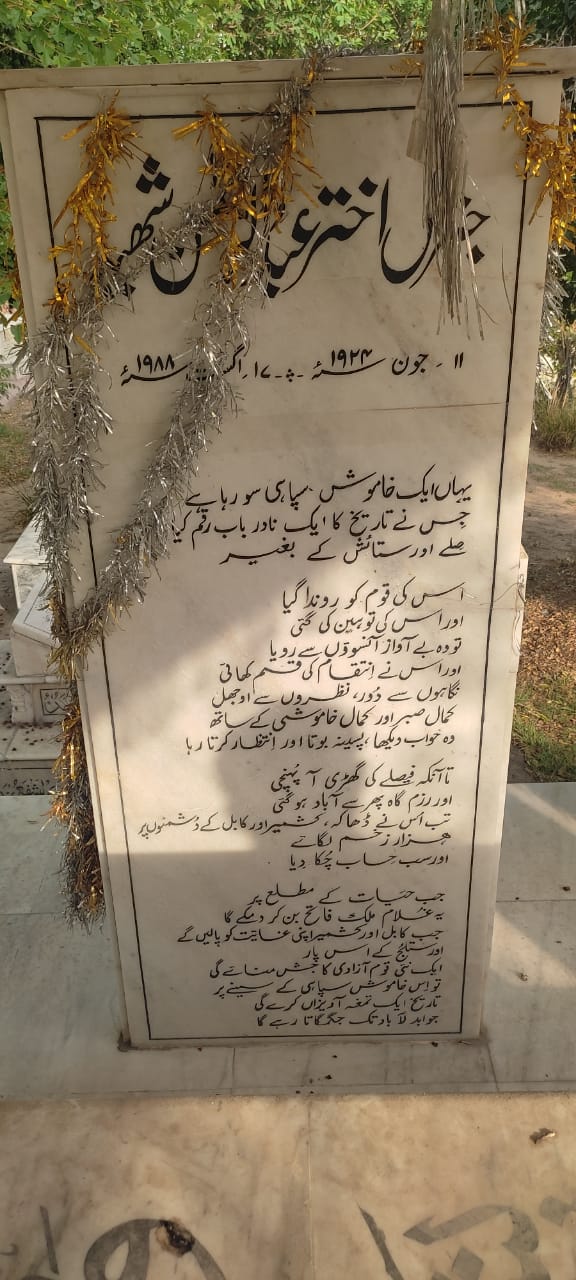 جنرل اختر عبدالرحمٰن شهید
۱۱ ۔ جون ۱۹۲۴ سنہٴ ۔؞۔ ۱۷ ۔ اگست ۱۹۸۸ سنہٴ
یہاں ایک خاموش سپاہی سو رہا ہے
جس نے تاریخ کا ایک نادر باب رقم کیا
صلے اور ستائش کے بغیر
اس کی قوم کو روندا گیا
اور اس کی توہین کی گئی
تو وہ بے آواز آنسوؤں سے رویا
اور اس نے انتقام کی قسم کھائی
نگاہوں سے دُور، نظروں سے اوجھل
کمال صبر اور کمال خاموشی کے ساتھ
وہ خواب دیکھا، پسینہ بوتا اور انتظار کرتا رہا
تا آنکہ فیصلے کی گھڑی آ پہنچی
اور رزم گاہ پھر سے آباد ہو گئی
تب اُس نے ڈھاکہ، کشمیر اور کابل کے دُشمنوں پر
ہزار زخم لگائے
اور سب حِساب چُکا دِیا
جب حیات کے مطلع پر
یہ غلام ملک فاتح بن کر دمکے گا
جب کابل اور کشمیر اپنی غایت کو پالیں گے
اور ستلج کے اس پار
ایک نئی قوم آزادی کا جشن منائے گی
تو اس خاموش سپاہی کے سینے پر
تاریخ ایک تمغہ آویزاں کرے گی
جو ابد لآباد تک جگمگاتا رہے گا